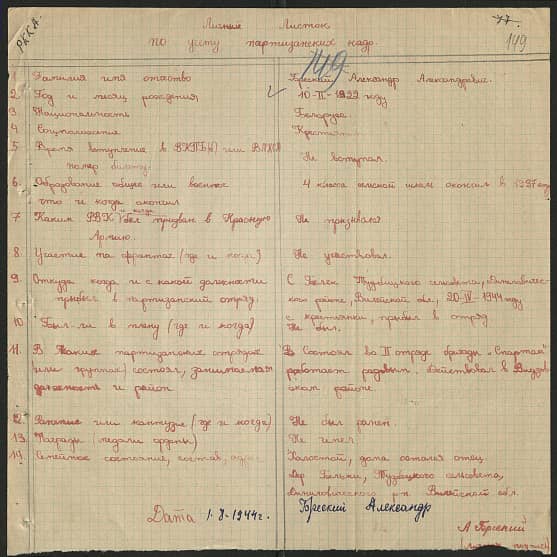 РККА.
149
Личный Листок
по учету партизанских кадр.
149
1. Фамилия имя отчество Александр Александрович.
2. Год и месяц рождения 10-II-1922 году
3. Национальность Белорус.
4. Соцположение Крестьян.
5. Время вступления в ВКПб) или ВЛКСМ
номер билета. Не вступал.
6. Образование общее или военное 4 класса сельской школы окончил в 1937 году
что и когда окончил
7. Каким РВК и когда был призван в Красную Не призывался
Армию.
8. Участие на фронтах (где и когда) Не участвовал.
9. Откуда когда и с какой должности С Тузбицкого сельсовета,
прибыл в партизанский отряд. района, Вилейской обл., 20-IV-1944 году
с крестьянки, прибыл в отряд
10. Был-ли в плену (где и когда) Не был.
11. В каких партизанских отрядах В Состоял во II отряде бригады "Спартак"
или группах состоял, занимаемая работает рядовым. Действовал в
должность и район районе.
12. Ранение или контузия (где и когда) Не был ранен.
13. Награды (медали ордена) Не имел
14. Семейное состояние, состав, адрес Холостой, дома остался отец
Дер Тузбицкого сельсовета,
р-н Вилейской обл.
Дата 1-8-1944г. Александр
А